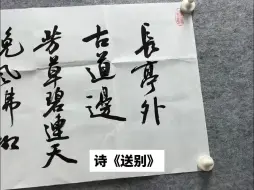 長亭外
古道邊
芳草碧連天
晚風拂
诗《送别》